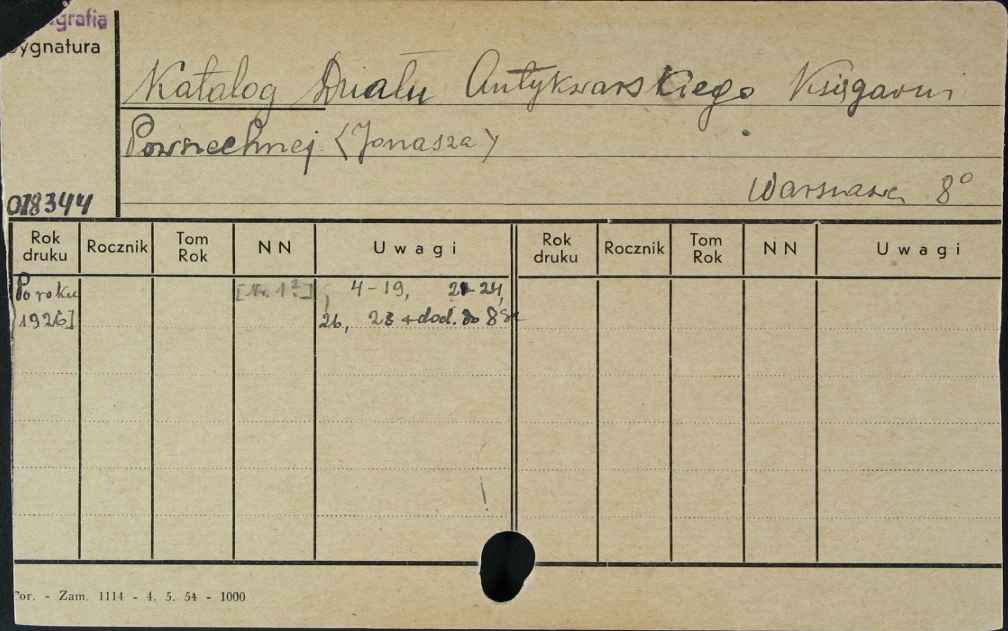 grafia
ygnatura
Katalog Działu Antykwarskiego Księgarni
Powszechnej <Jonasza>
Warszawa 8°
018344
Rok druku Rocznik Tom Rok NN Uwagi Rok druku Rocznik Tom Rok NN Uwagi
Po roku [Nr. 1?] 4-19, 21-24,
1926] 26, 28 + dod. do
or. - Zam. 1114 - 4. 5. 54 - 1000